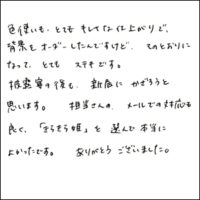 色使いも、とても キレイな仕上がりで、
背景を オーダーしたんですけど、そのとおりに
なって、とても ステキです。
披露宴の後も、新居に かざろうと
思います。 担当さんの メールでの対応も
良く、「きらきら姫」を 選んで 本当に
よかったです。 ありがとう ございました。